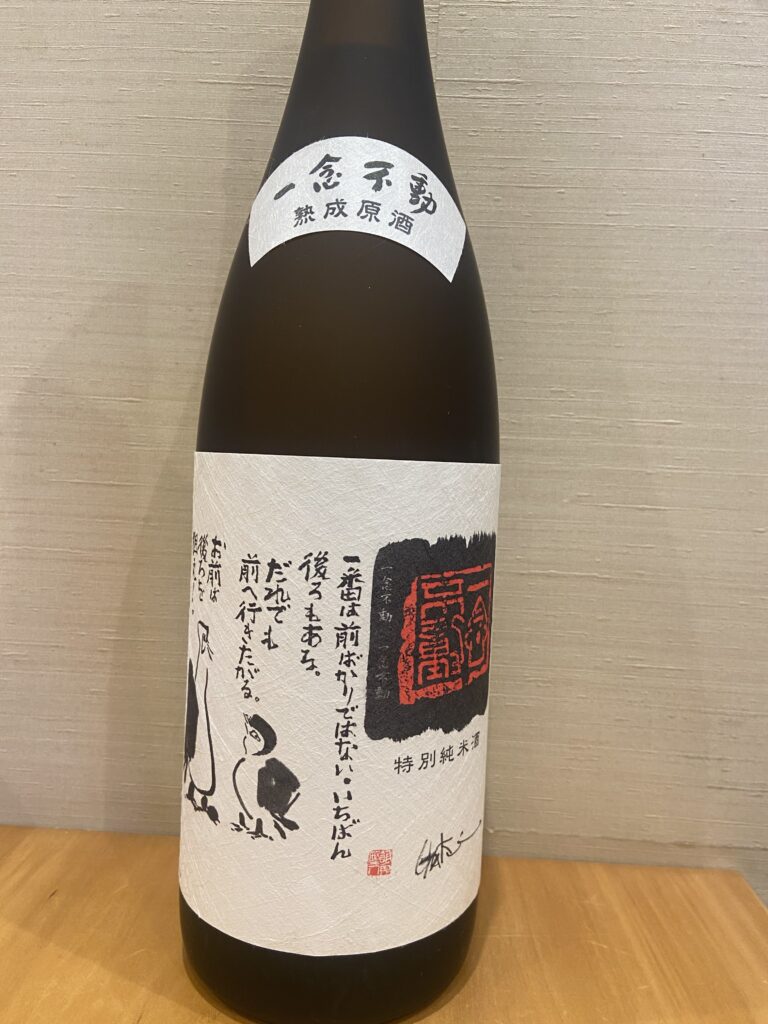 一念不動
熟成原酒
一念不動
一念不動 一念不動
特別純米酒
一番は前ばかりではない。いちばん
後ろもある。
だれでも
前へ行きたがる。
お前は
後ろを